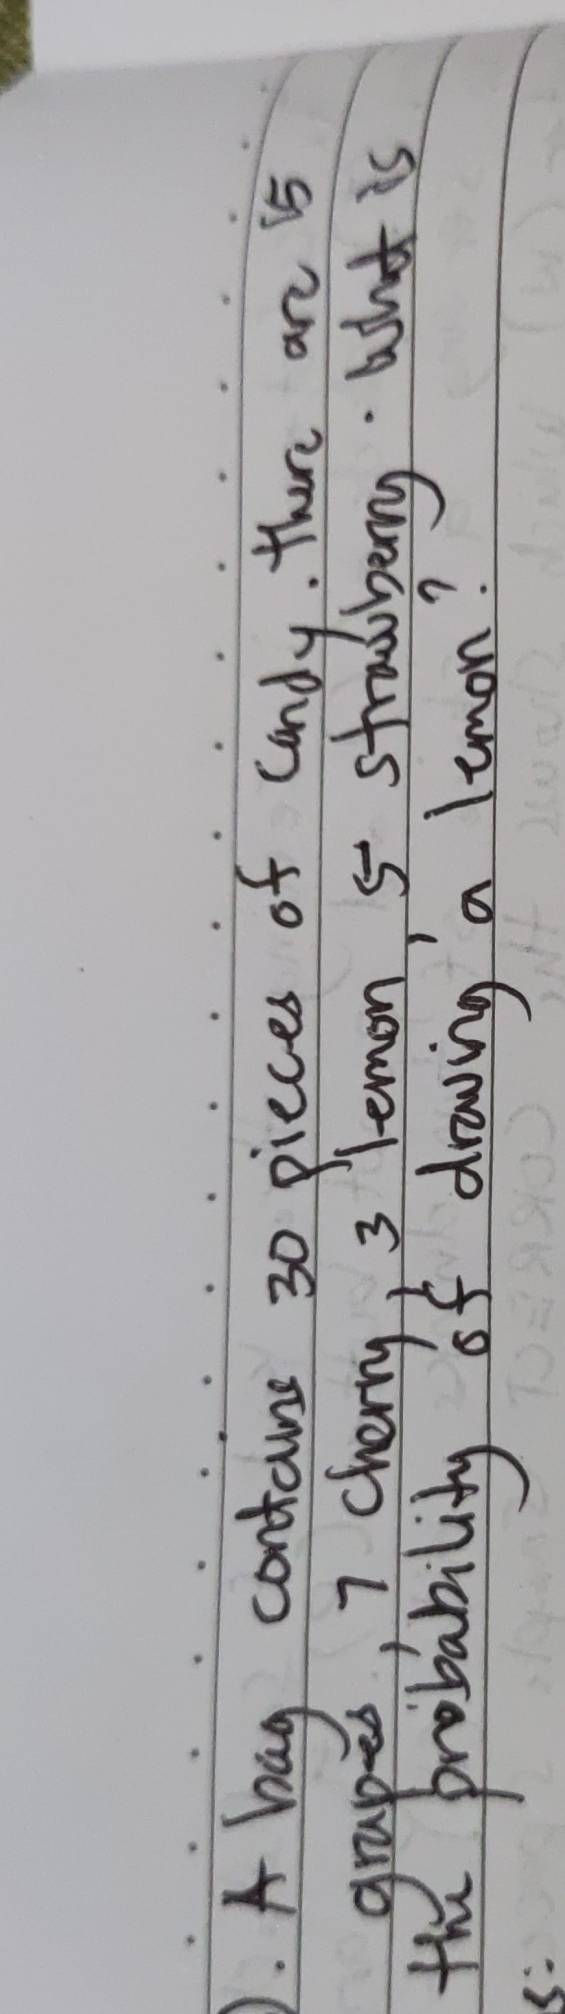 ). A bag contains 30 pieces of candy. there are 15
grapes, 7 cherry, 3 lemon, 5 strawberry. What is
the probability of drawing a lemon?
s: